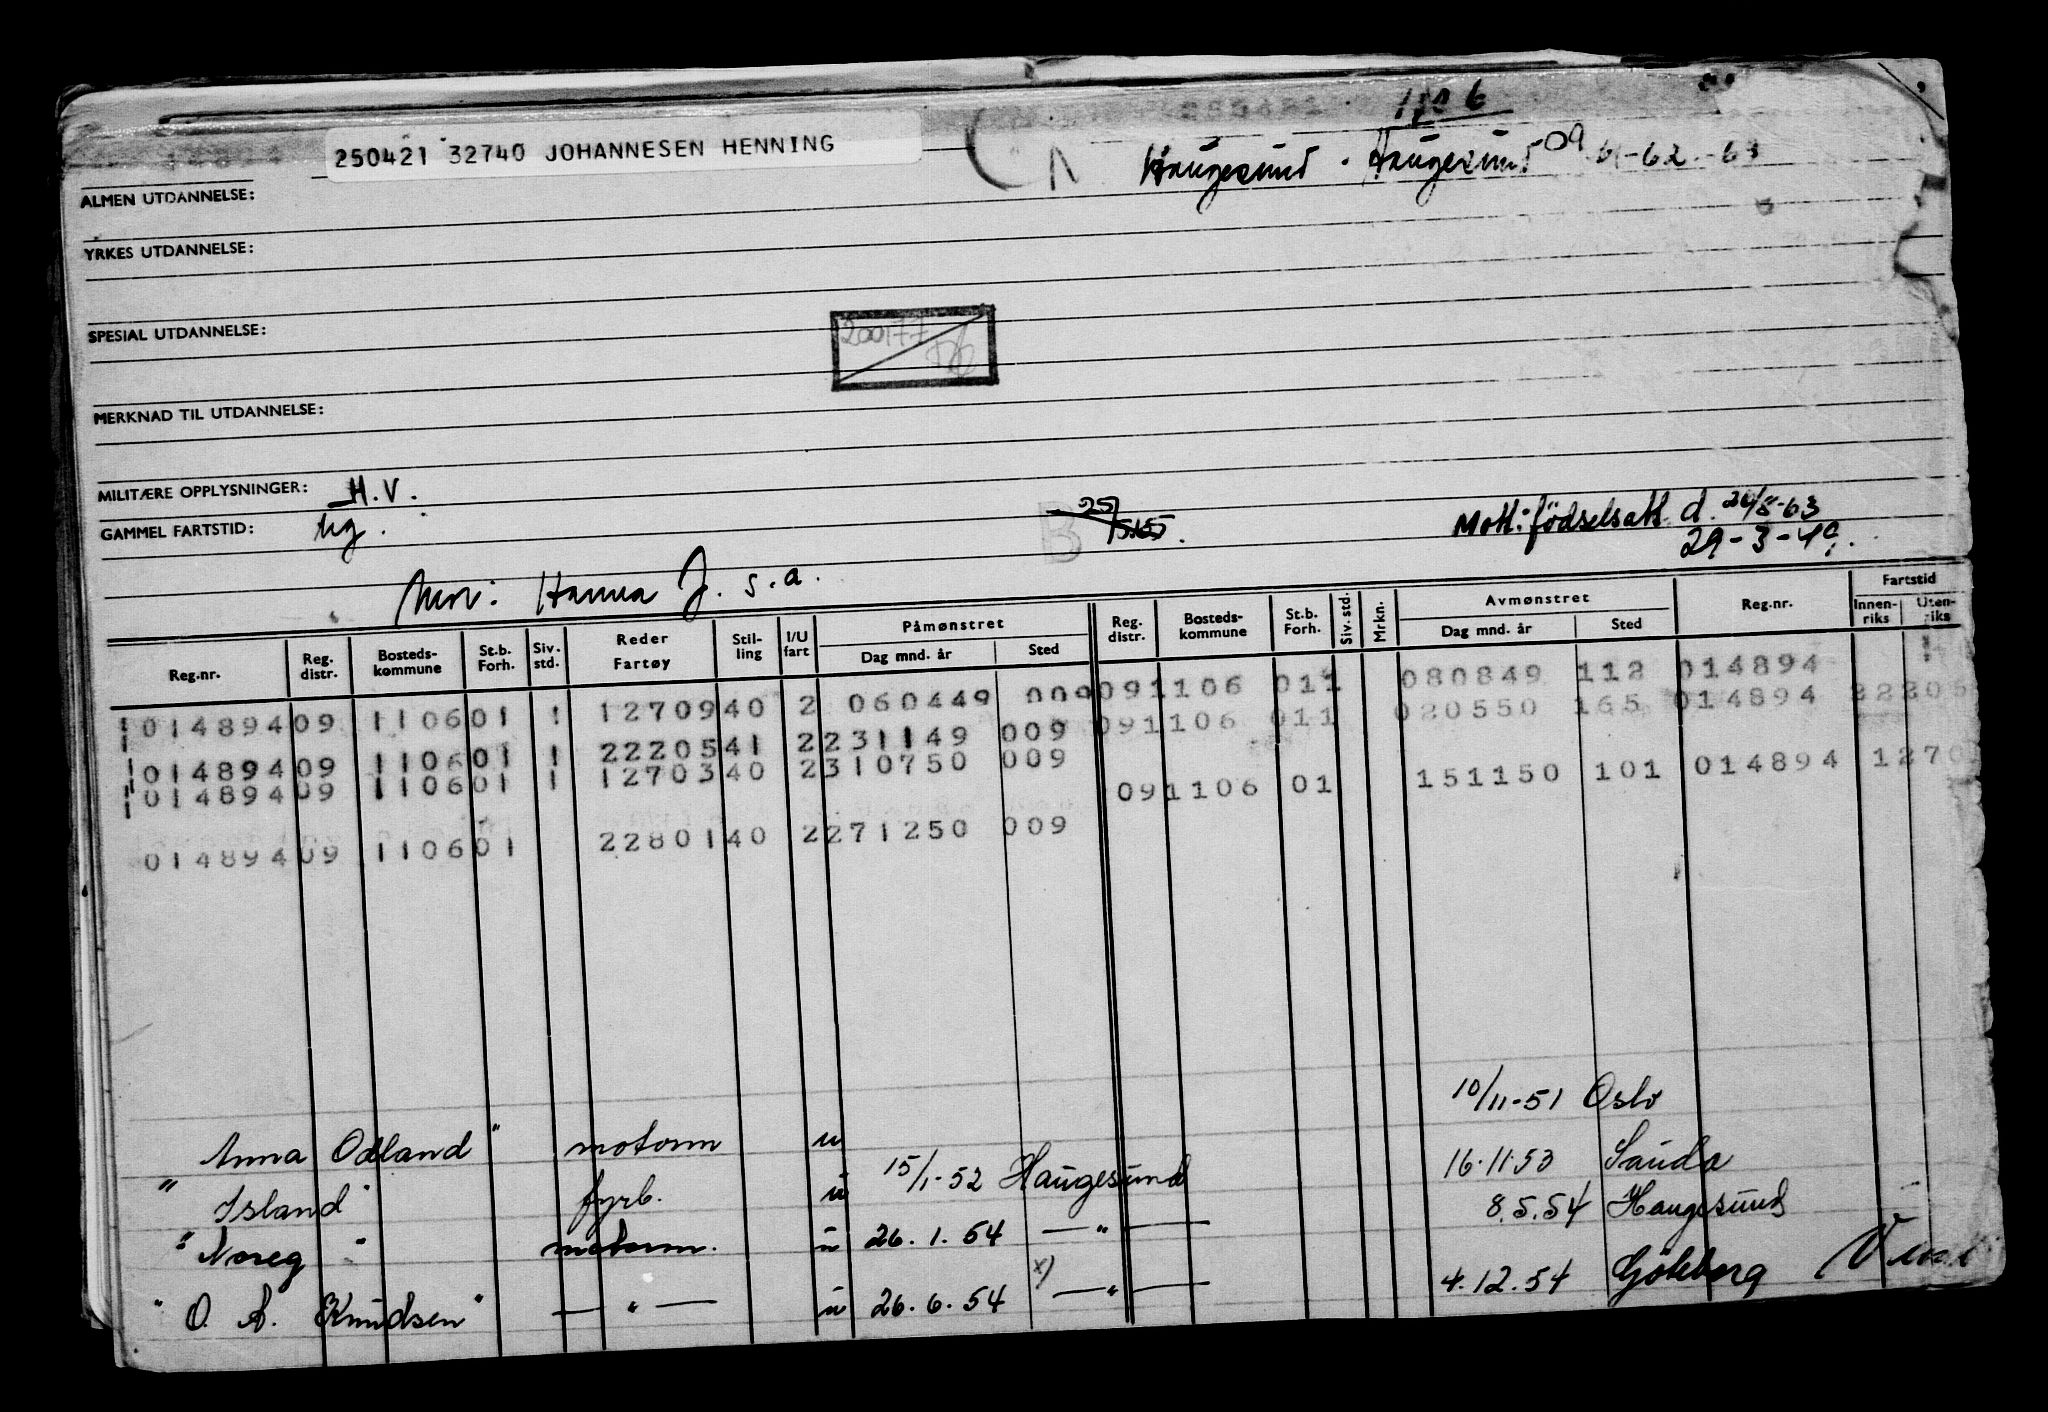 1106
250421 32740 JOHANNESEN HENNING
N Haugesund . Haugesund 09 61-62-63
ALMEN UTDANNELSE:
YRKES UTDANNELSE:
SPESIAL UTDANNELSE:
200177
MERKNAD TIL UTDANNELSE:
MILITÆRE OPPLYSNINGER: H.V.
GAMMEL FARTSTID: ug.
B 25/
Mott. födselsatt d.
29-3-40.
Mor: Hanna J. s.a.
Reg.nr. Reg. distr. Bosteds-kommune St.b. Forh. Siv. std. Reder Fartøy Stil-ling I/U fart Påmønstret Dag mnd. år Sted Reg. distr. Bosteds-kommune St.b. Forh. Siv. std. Mrkn. Avmønstret Dag mnd. år Sted Reg.nr. Fartstid Innen-riks Uten-riks
014894 09 1106 01 1 12709 40 2 060449 009 09 1106 011 080849 112 014894
014894 09 1106 01 1 22205 41 2 231149 009 09 1106 011 020550 165 014894 22205
014894 09 1106 01 1 12703 40 2 310750 009 09 1106 01 151150 101 014894 1270
014894 09 1106 01 22801 40 2 271250 009
10/11-51 Oslo
Anna Odland" motorm u
" Island" fyrb. u 15/1-52 Haugesund 16.11.53 Sauda
" Noreg " motorm. u 26.1.54 — " — 8.5.54 Haugesund
" O. A. Knudsen" — " — u 26.6.54 x) — " — 4.12.54 Göteborg